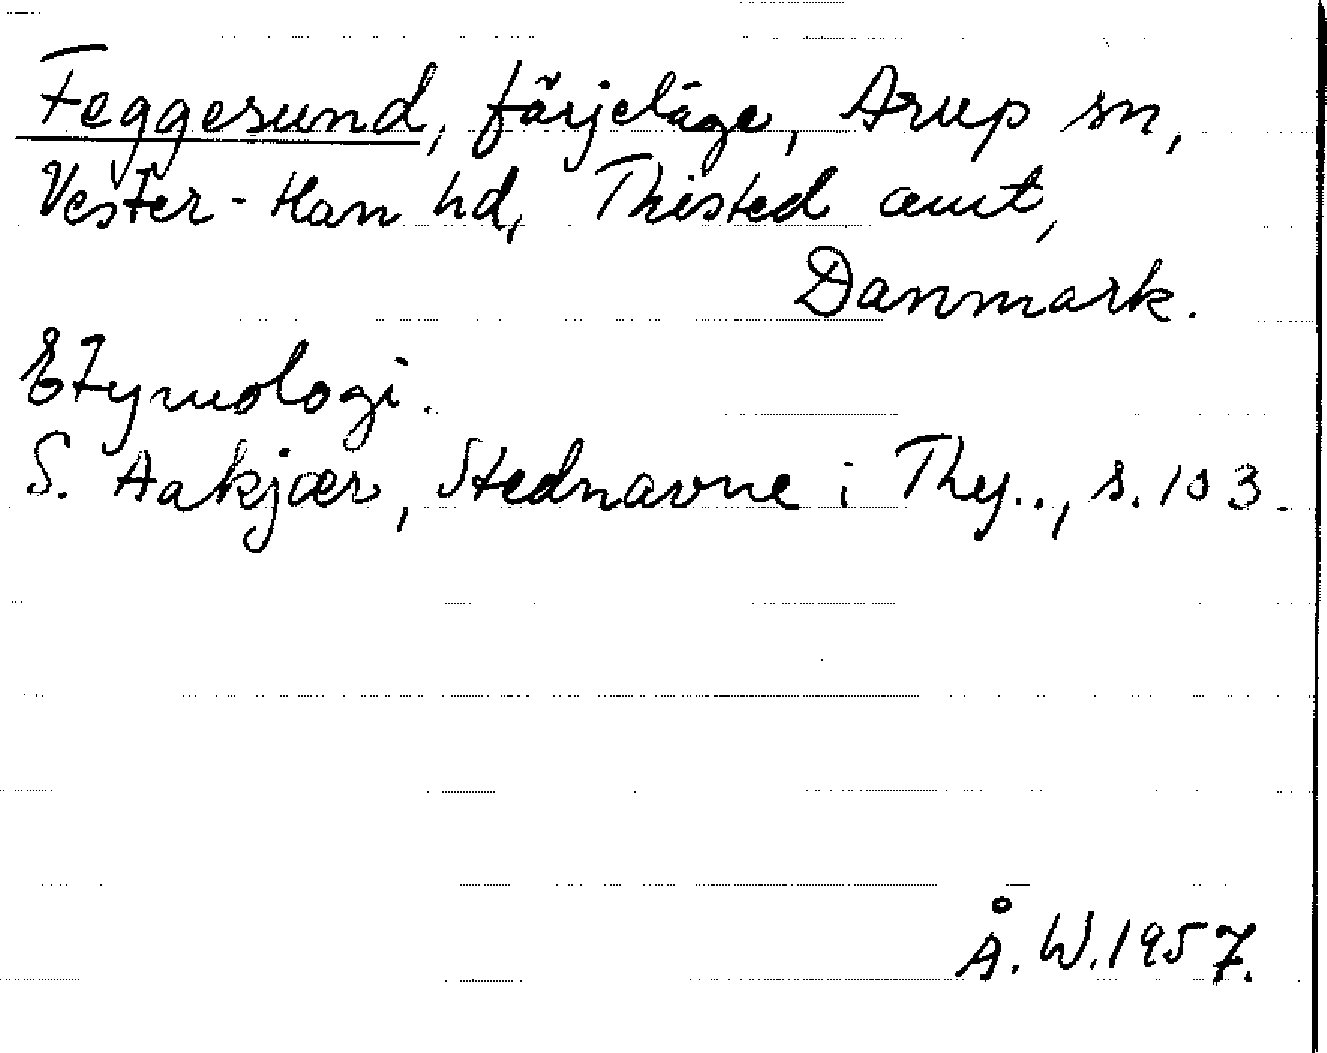 Feggesund, färjeläge, Arup sn,
Vester-Han hd, Thisted amt,
Danmark.
Etymologi.
S. Aakjær, Stednavne i Thy.., s. 103.
Å. W. 1957.